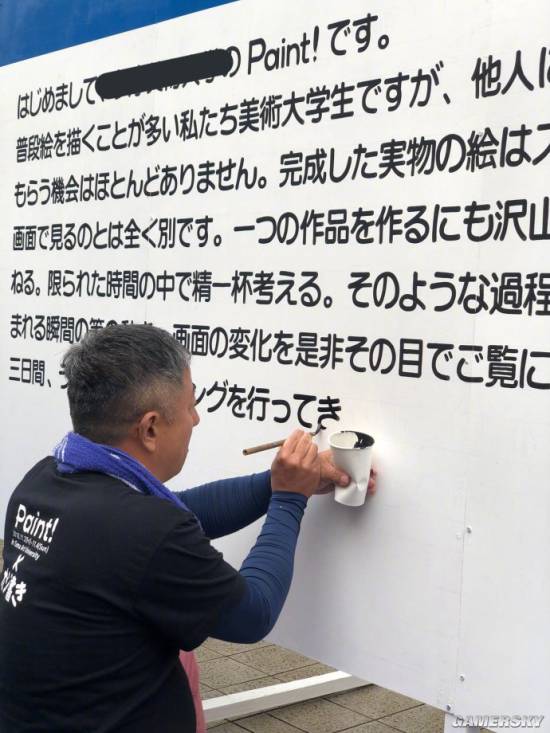 はじめまして のPaint!です。
普段絵を描くことが多い私たち美術大学生ですが、他人に
もらう機会はほとんどありません。完成した実物の絵はス
画面で見るのとは全く別です。一つの作品を作るにも沢山
ねる。限られた時間の中で精一杯考える。そのような過程
まれる瞬間の筆の 画面の変化を是非その目でご覧に
三日間、 ングを行ってき
Paint!
Art University
×
書き
GAMERSKY